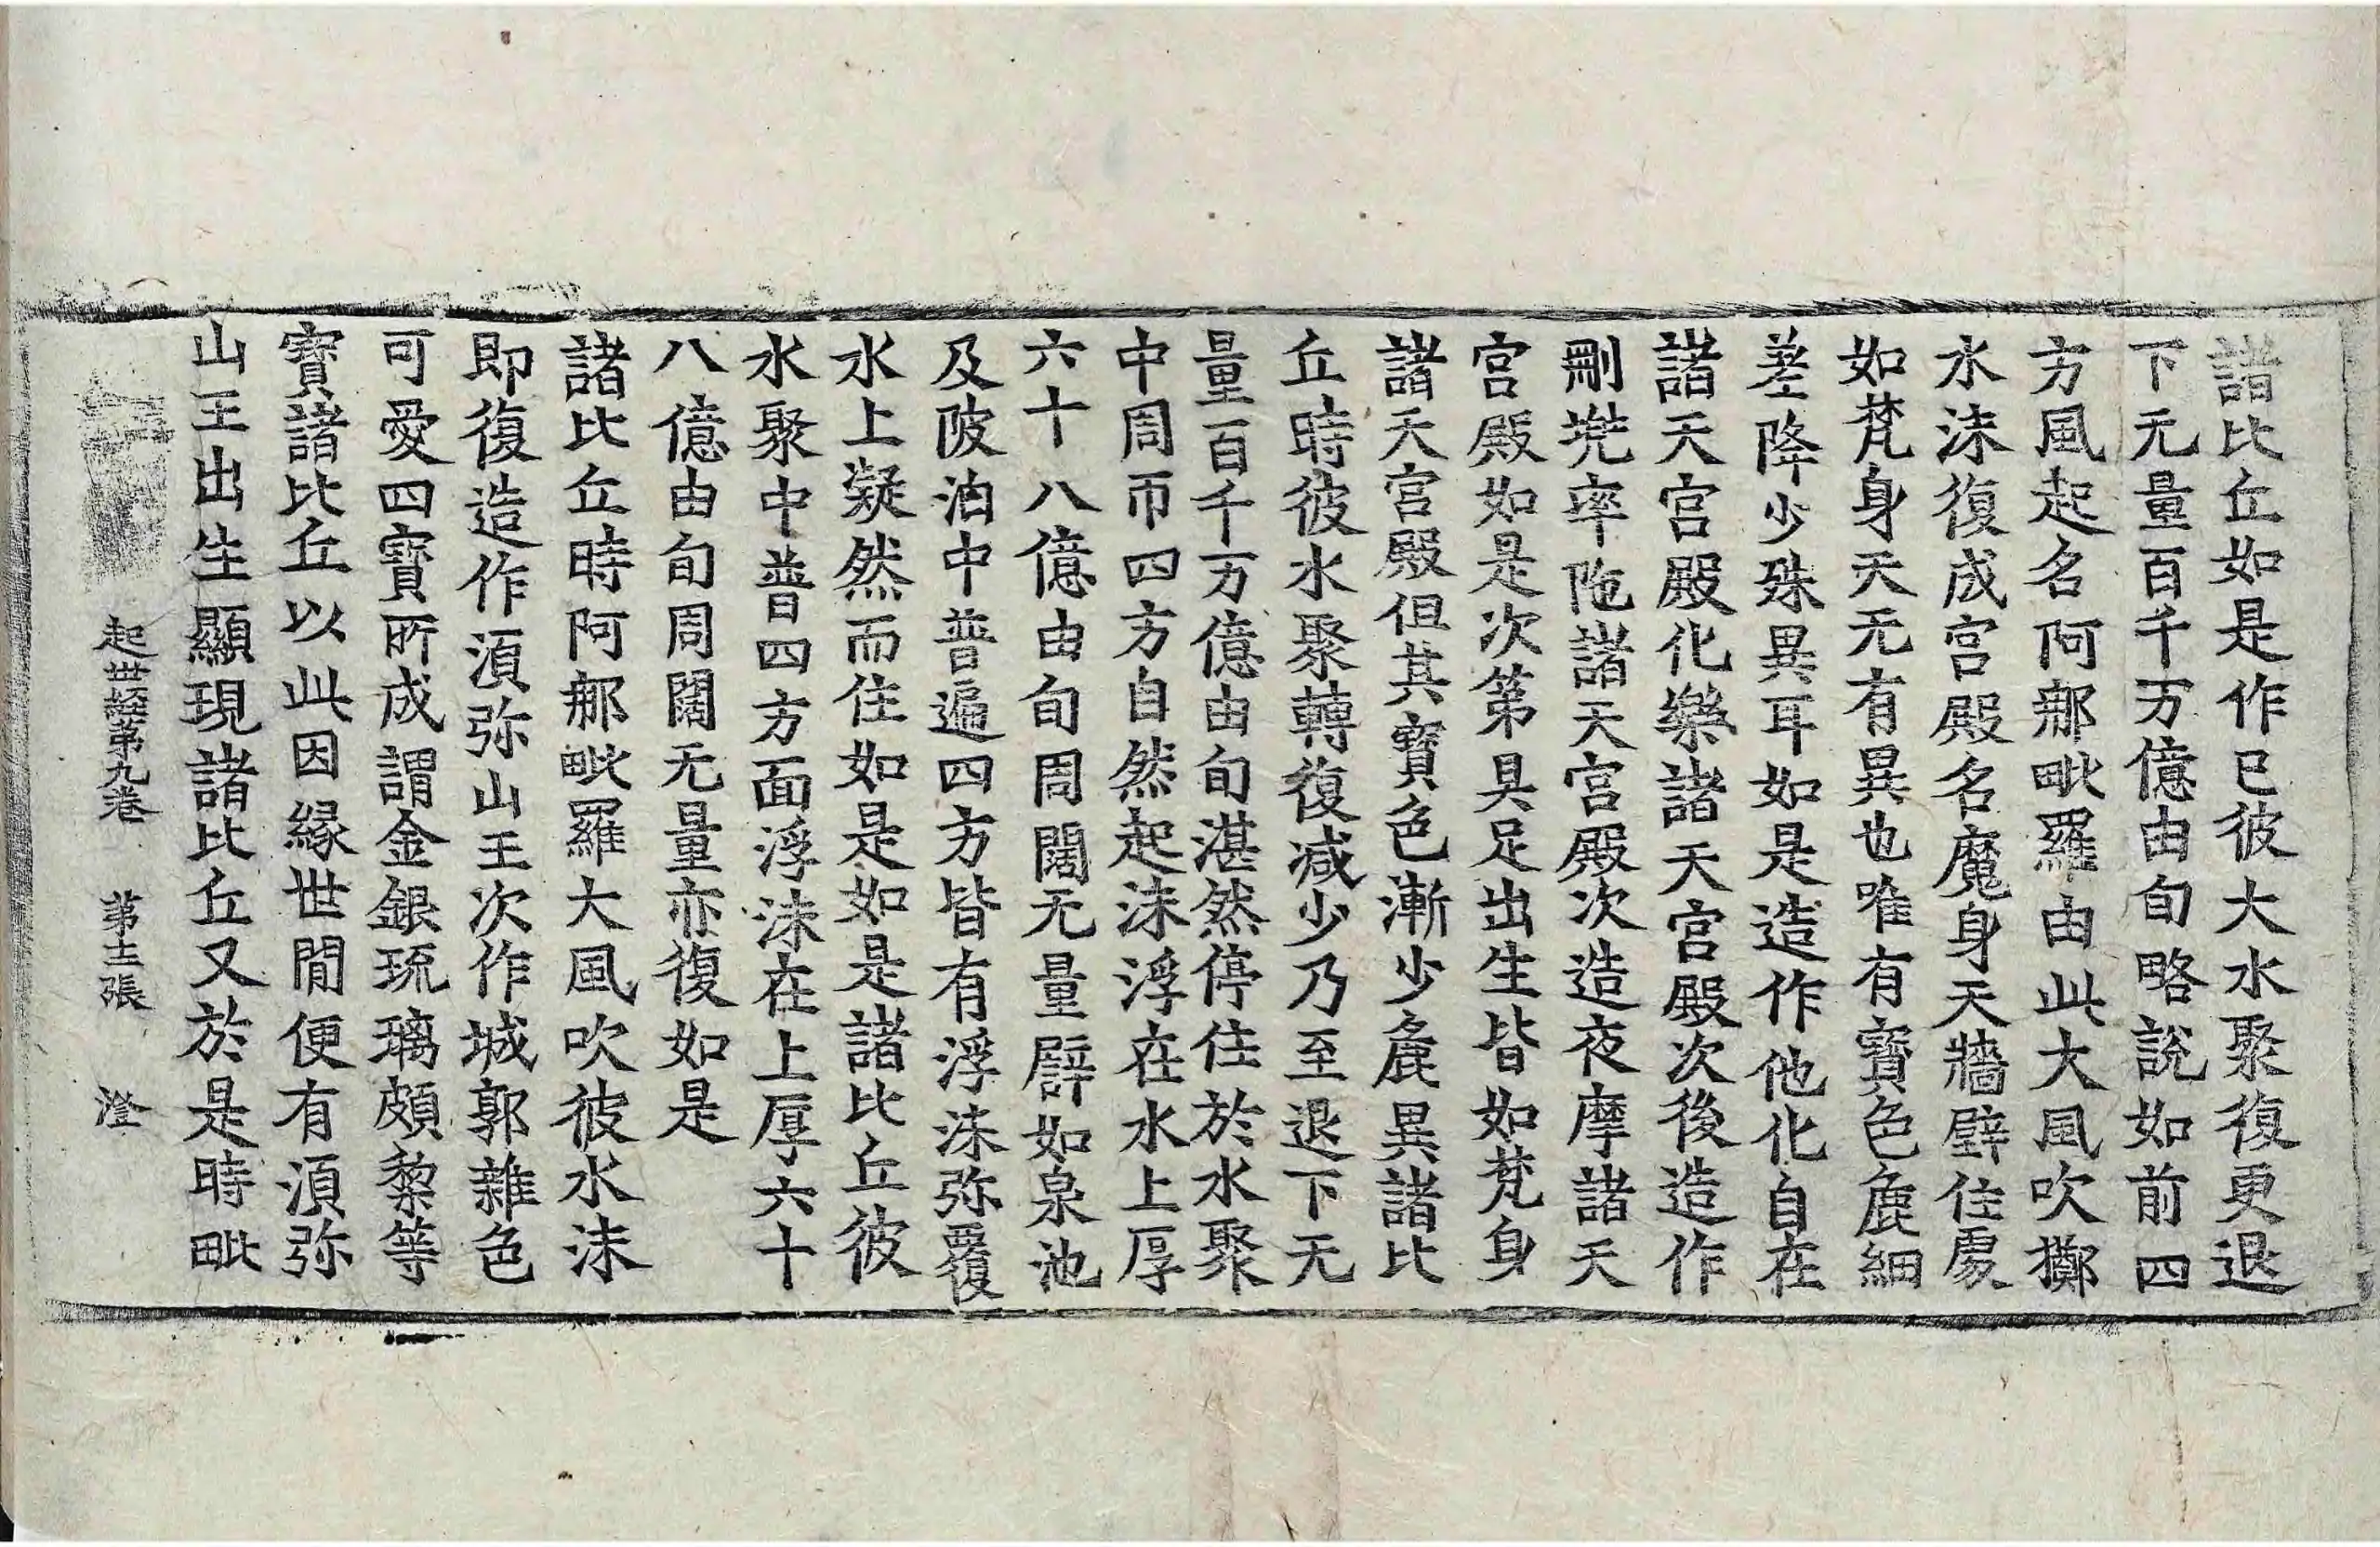 諸比丘如是作已彼大水聚復更退
下无量百千万億由旬略說如前四
方風起名阿那毗羅由此大風吹擲
水沫復成宮殿名魔身天牆壁住處
如梵身天无有異也唯有寶色麁細
差降少殊異耳如是造作他化自在
諸天宮殿化樂諸天宮殿次後造作
刪兠率陁諸天宮殿次造夜摩諸天
宮殿如是次第具足出生皆如梵身
諸天宮殿但其寶色漸少麁異諸比
丘時彼水聚轉復減少乃至退下无
量百千万億由旬湛然停住於水聚
中周帀四方自然起沫浮在水上厚
六十八億由旬周闊无量譬如泉池
及陂泊中普遍四方皆有浮沫弥覆
水上凝然而住如是如是諸比丘彼
水聚中普四方面浮沫在上厚六十
八億由旬周闊无量亦復如是
諸比丘時阿那毗羅大風吹彼水沫
即復造作湏弥山王次作城郭雜色
可愛四寶所成謂金銀琉璃頗黎等
寶諸比丘以此因緣世閒便有湏弥
山王出生顯現諸比丘又於是時毗
起世經第九卷 第十二張 澄